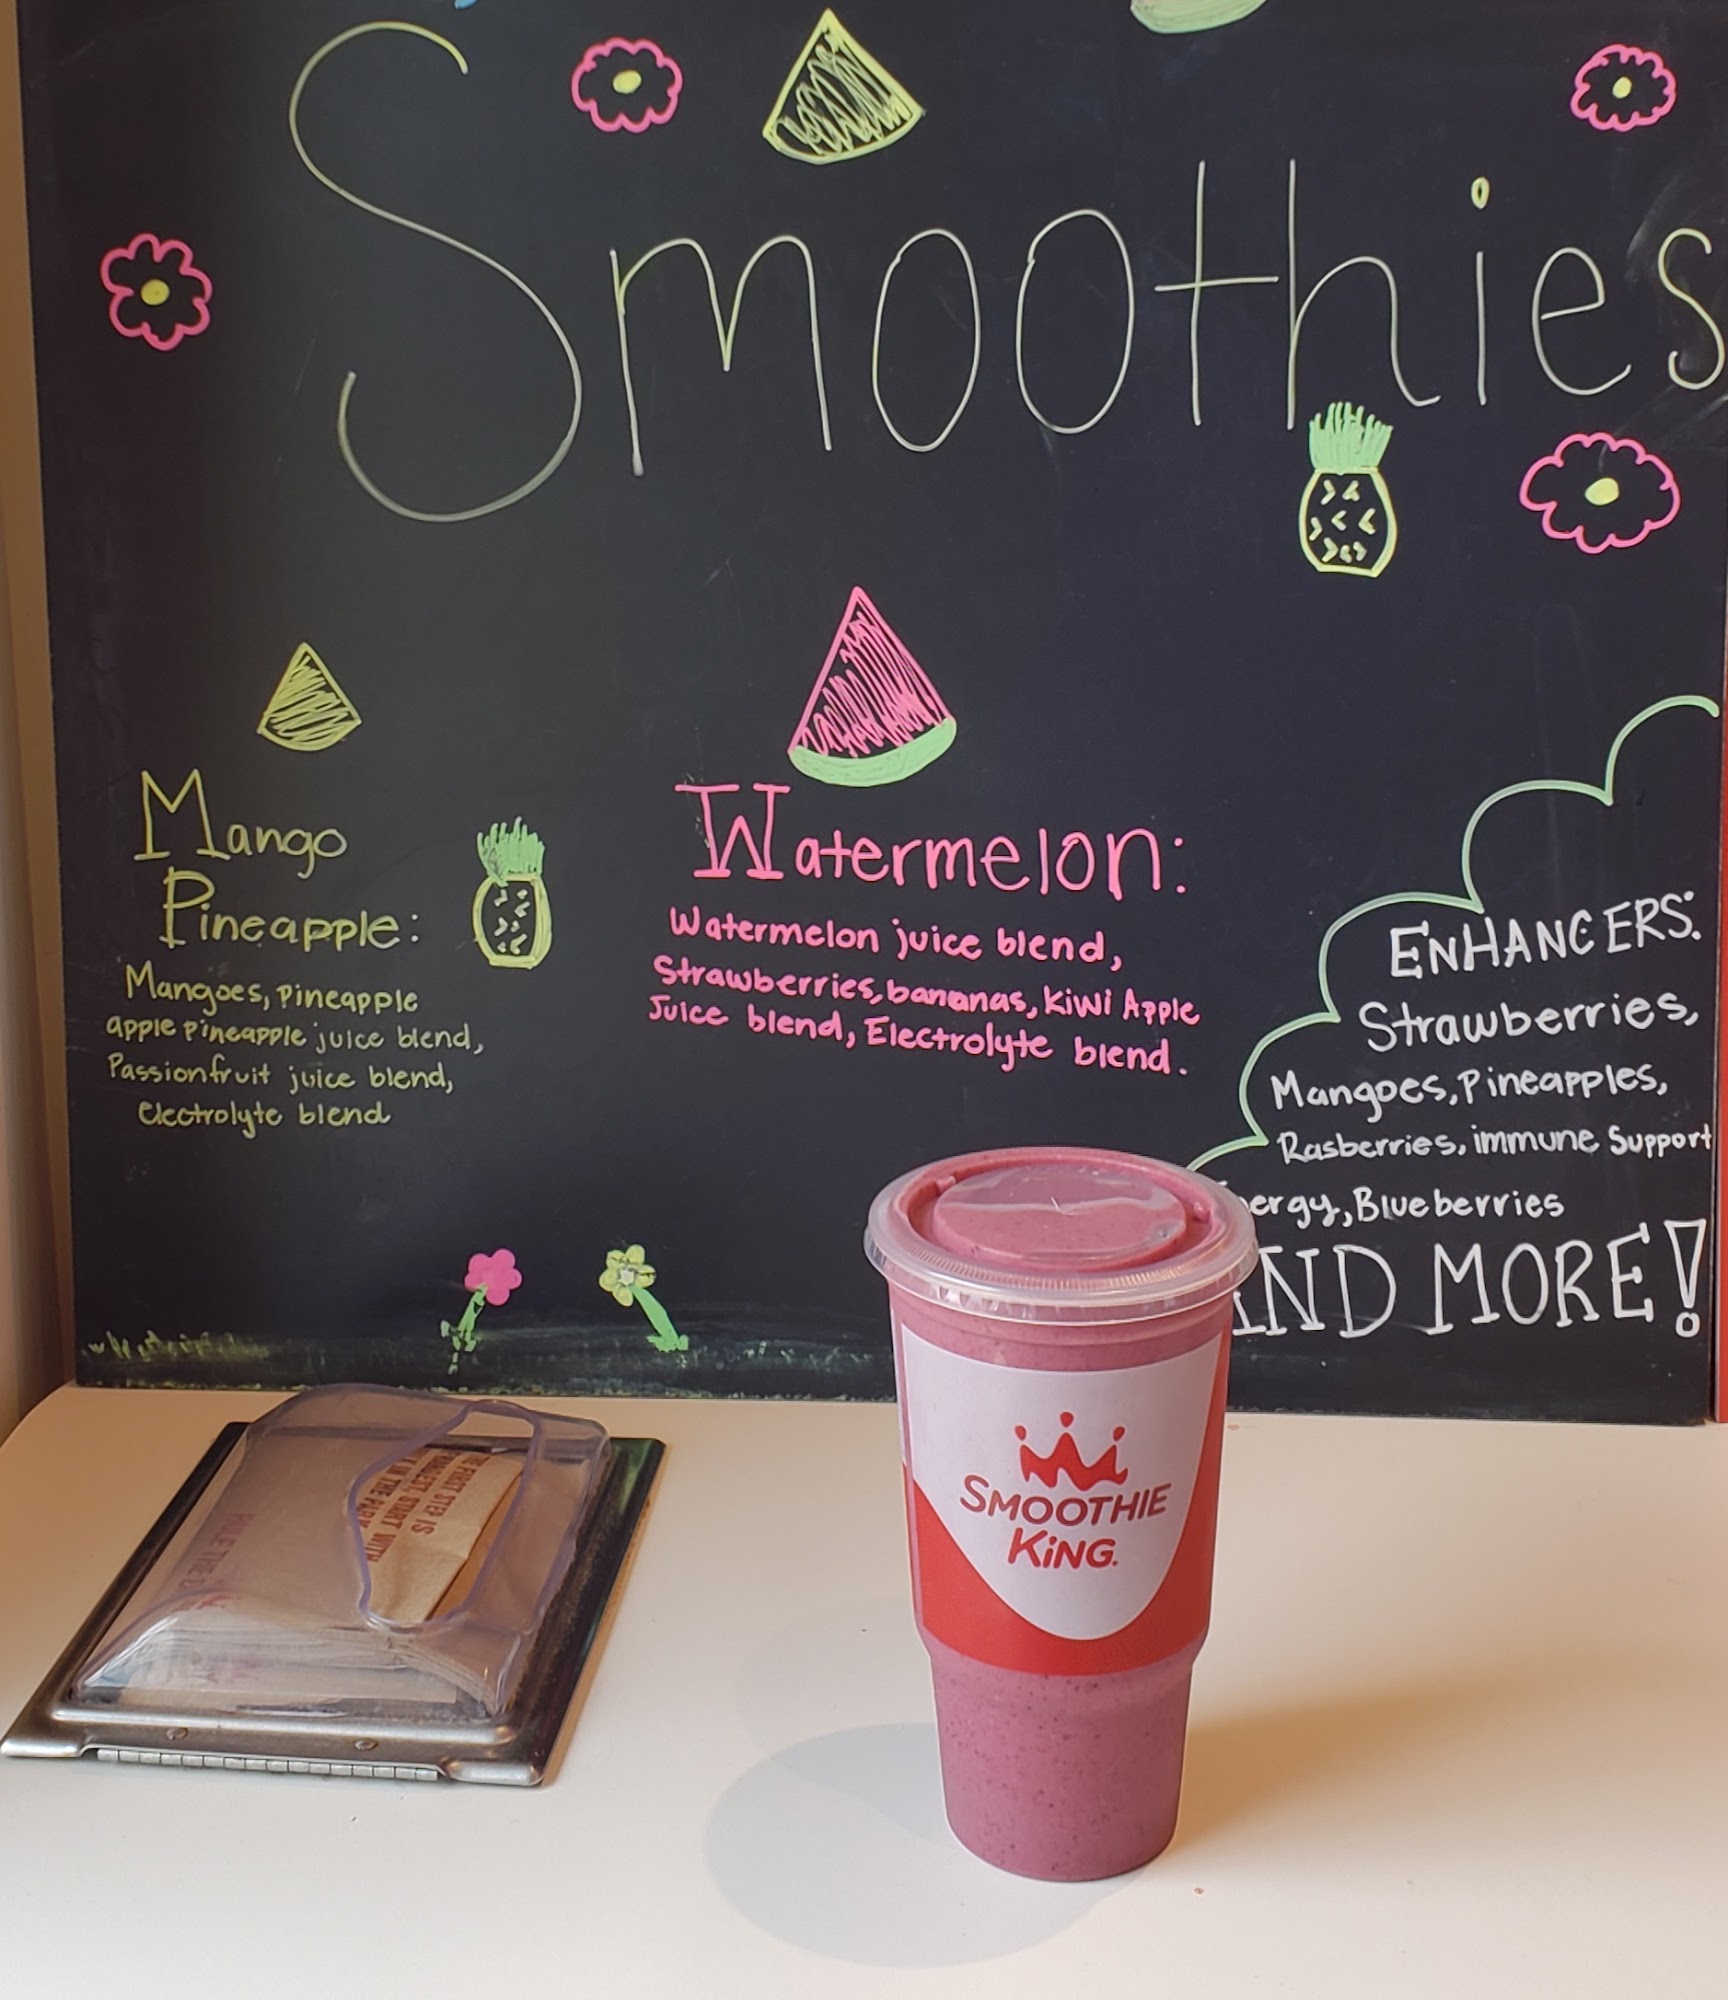 Smoothies
Mango
Pineapple:
Mangoes, Pineapple
apple pineapple juice blend,
Passionfruit juice blend,
Electrolyte blend
Watermelon:
Watermelon juice blend,
Strawberries, bananas, Kiwi Apple
Juice blend, Electrolyte blend.
ENHANCERS:
Strawberries,
Mangoes, Pineapples,
Rasberries, immune Support
ergy, Blueberries
ND MORE!
SMOOTHIE
KING.
FIRST STEP IS
START WITH
IN THE
RULE THE